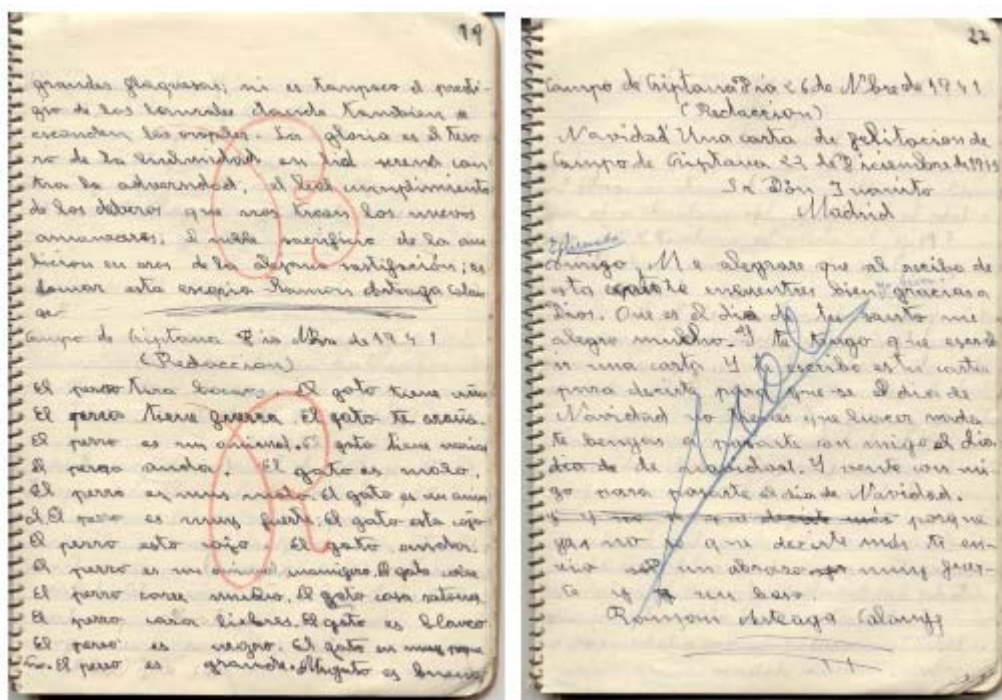 19
grandes flaquezas; ni es tampoco el presti-
gio de los laureles donde tambien se
esconden los oropeles. La gloria es el teso
ro de la en tal serena con
tra la adversidad, el leal cumplimiento
de los deberes que nos traen los nuevos
amaneceres; el noble sacrificio de la am
bicion en aras de la satisfación; es
tomar esta Ramon Arteaga Calon
ge
Campo de Criptana Dia Nbre de 1941
(Redaccion)
El perro tira bocaos. El gato tiene uñas
El perro tiene guerra. El gato te araña.
El perro es un animal. El gato tiene
El perro anda. El gato es malo.
El perro es mus malo. El gato es un anim
al. El perro es muy fuerte. El gato esta cojo
El perro esta cojo. El gato andar.
El perro es un animal mamifero. El gato corre
El perro corre mucho. El gato casa ratones.
El perro caza liebres. El gato es blanco
El perro es negro. El gato es muy peque
ño. El perro es grande. es bueno
22
Campo de Criptana Dia 26 de Nbre de 1941
(Redaccion)
Navidad Una carta de felitacion de
Campo de Criptana 22 de Diciembre de 1941
Sr Don Juanito
Madrid
Estimado
amigo. Me alegrare que al recibo de
esta te encuentres bien gracias a
Dios. Que es el dia de tu santo me
alegro mucho. Y te tengo que escrib
ir una carta. Y te escribo esta carta
para decirte que el dia de
Navidad no tienes que hacer nada
te bengas a pasarte con migo el dia
dia de de navidad. Y vente con mi
go para pasarte el dia de Navidad.
y no se que decirte más porque
yas no se que decirte más te en
vio un abrazo muy fuer-
te y un beso.
Ramon Arteaga Calonge